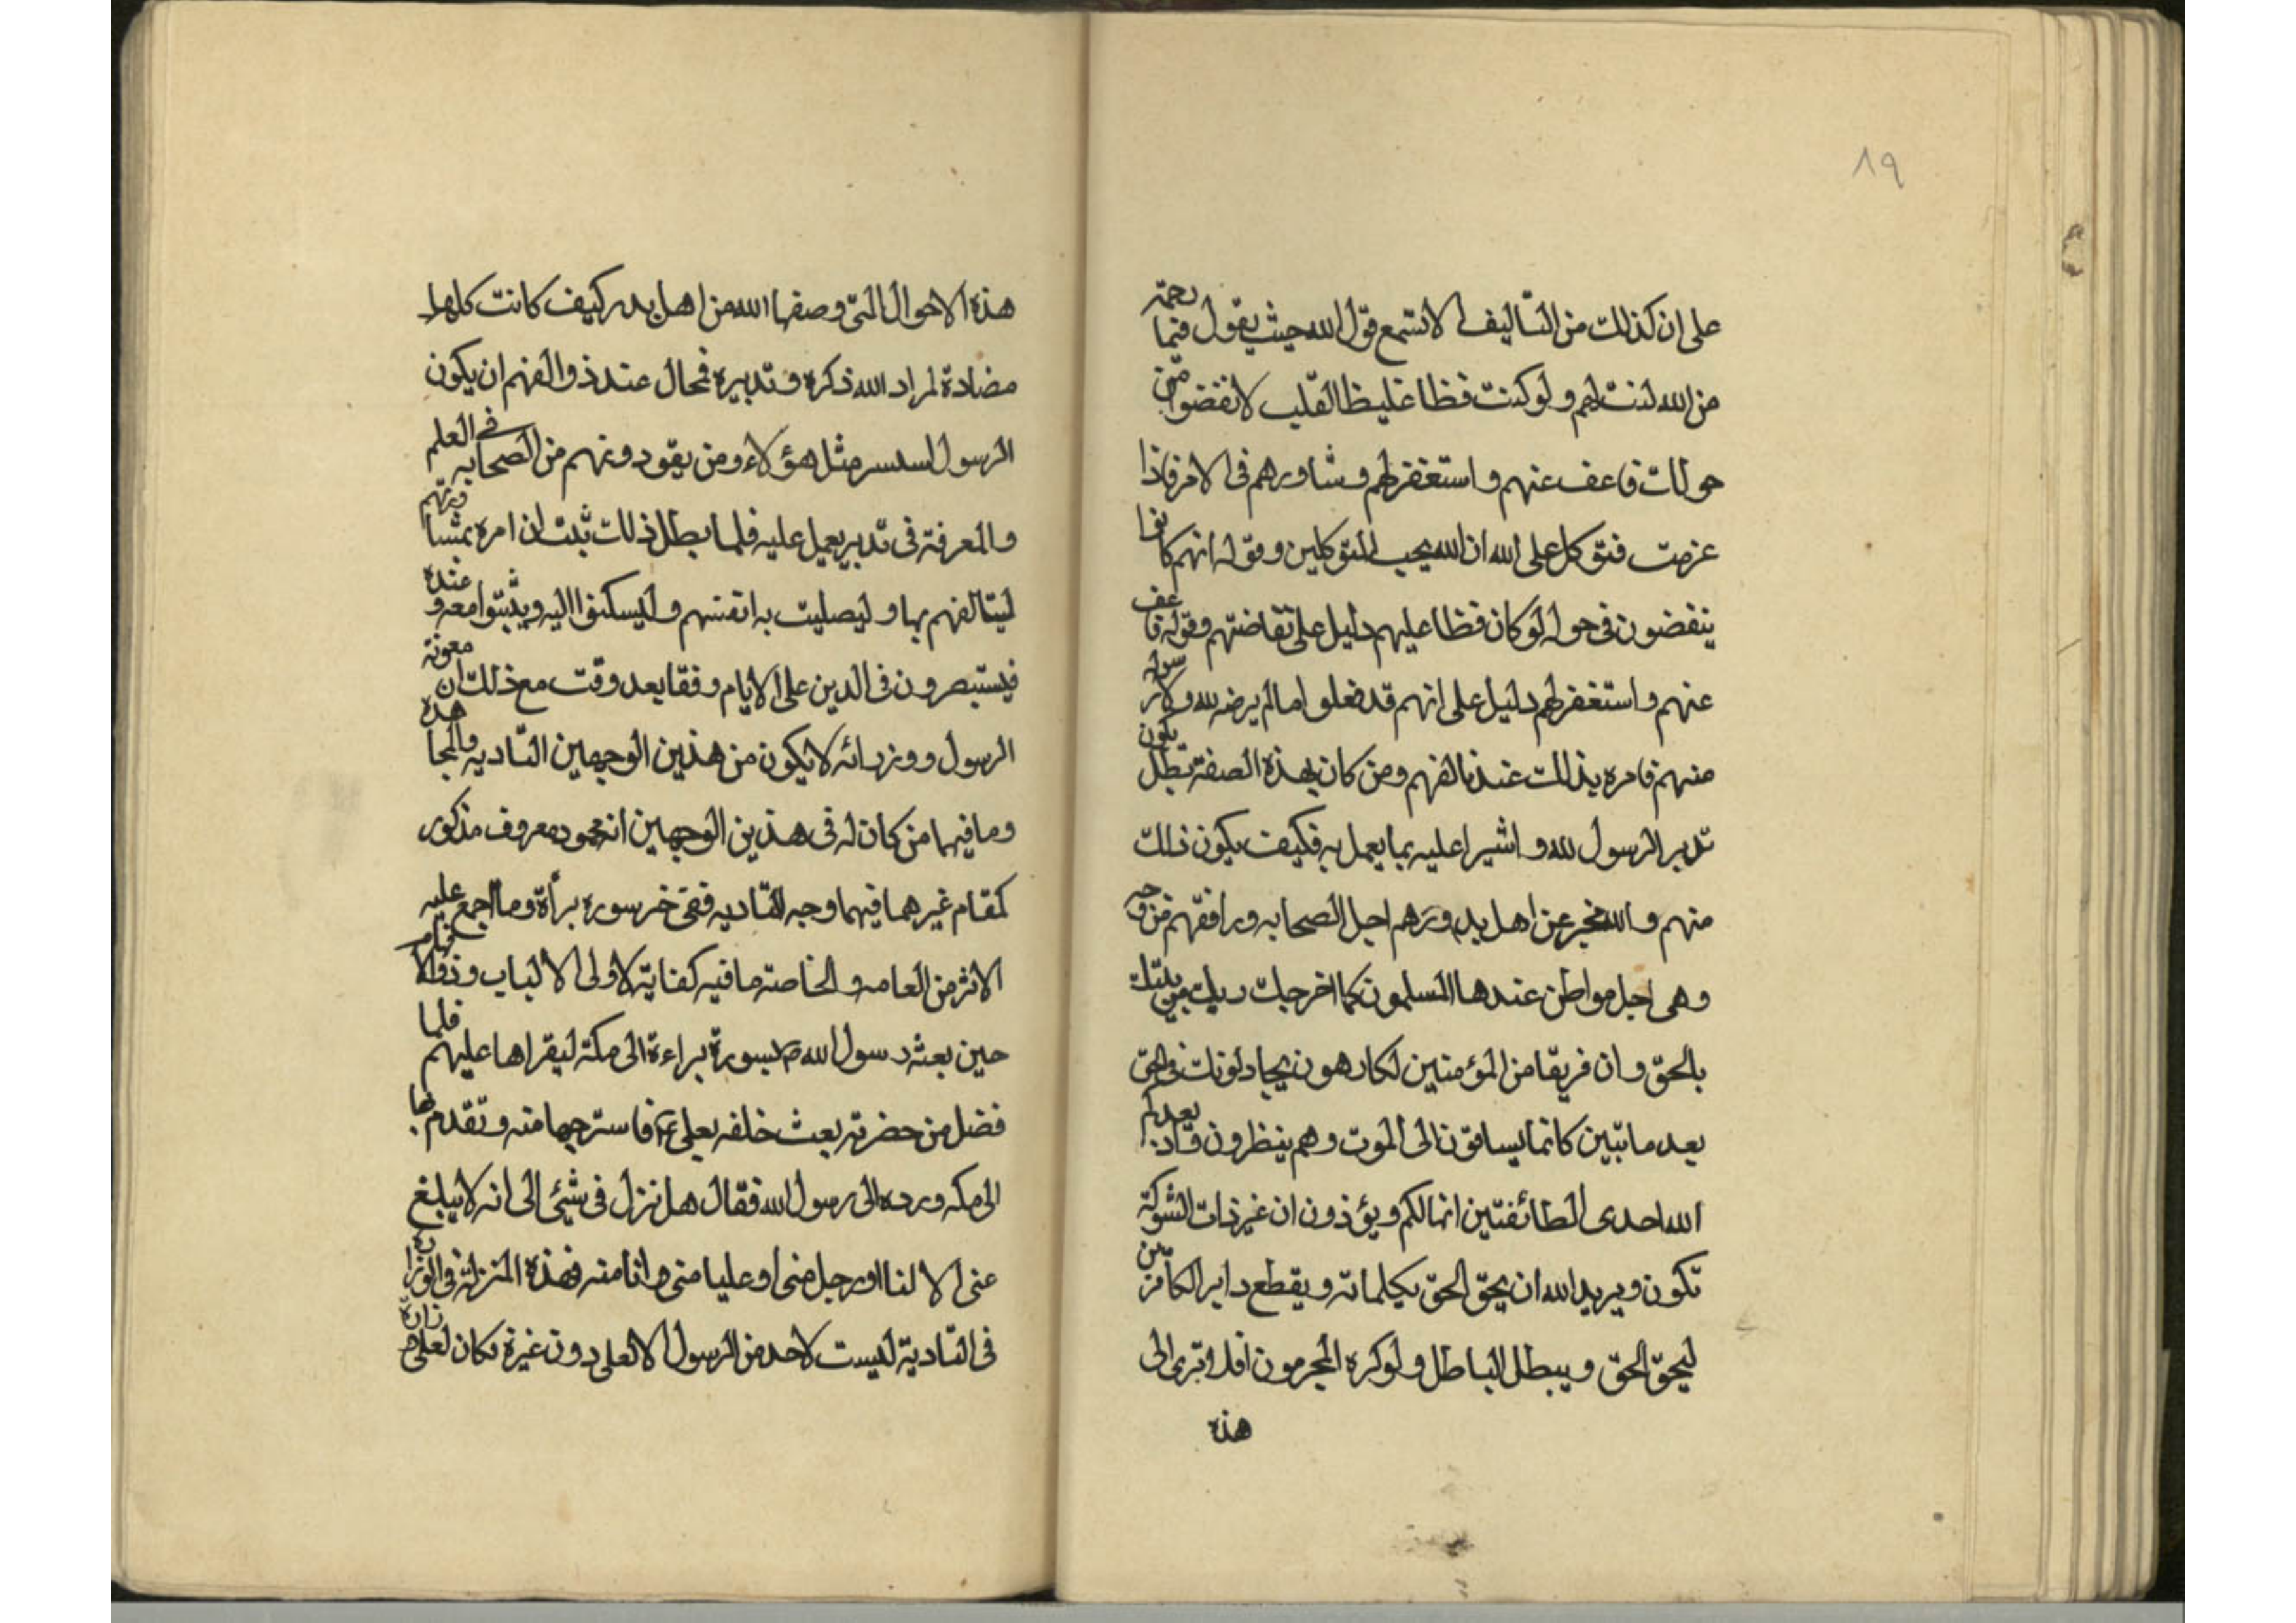 ٨٩
على ان كذلك من التاليف الا تسمع قول الله حيث يقول فبما رحمة
من الله لنت لهم ولو كنت فظا غليظا القلب لانفضوا من
حولك فاعف عنهم واستغفر لهم وشاورهم فى الامر فاذا
عزمت فتوكل على الله ان الله يحب المتوكلين وقوله انهم كانوا
ينفضون فى حوله لو كان فظا عليهم دليل على تقاضتهم وقوله فاعف
عنهم واستغفر لهم دليل على انهم قد فعلوا ما لم يرضه لله ولا رسوله
منهم فامره بذلك عند تالفهم ومن كان بهذه الصفة بطل يكون
تدبر الرسول لله واشيرا عليه بما يعمل به فكيف يكون ذلك
منهم والله مخبر عن اهل بدر وهم اجل الصحابه ورافقهم من وجه
وهى اجل مواطن عندها المسلمون كما اخرجك ربك من بيتك
بالحق وان فريقا من المؤمنين لكارهون يجادلونك فى الحق
بعد ما تبين كانما يساقون الى الموت وهم ينظرون واذ يعدكم
الله احدى الطائفتين انها لكم ويؤذون ان غير ذات الشوكة
تكون ويريد الله ان يحق الحق بكلماته ويقطع دابر الكافرين
ليحق الحق ويبطل الباطل ولو كره المجرمون افلا ترى الى
هذه
هذه الاحوال التى وصفها الله من اهل بدر كيف كانت كلها
مضادة لمراد الله ذكره وتدبيره فمحال عند ذو الفهم ان يكون
الرسول مثل هؤلاء ومن يقود ونهم من الصحابه فى العلم
والمعرفة فى تدبير يعمل عليه فلما بطل ذلك ثبت ان امره بمشاورتهم
ليتالفهم بها وليصليت به انفسهم وليسكنوا اليه ويثبتوا معه وعنده
فيستبصرون فى الدين على الايام وفقا بعد وقت مع ذلك ان معونة
الرسول ووزرائه لا يكون من هذين الوجهين التاديه والمجاهده
وما فيهما من كان له فى هذين الوجهين انه محمود معروف مذكور
كمقام غيرهما فيهما وجه التاديه ففى خر سوره براة وما اجمع عليه
الاثر من العامه والخاصة ما فيه كفاية لاولى الالباب وذوالافهام
حين بعثه رسول الله ص بسورة براءة الى مكة ليقراها عليهم فلما
فضل من حضرته بعث خلفه بعلى ع فاسترجعها منه وتقدم بها
الى مكه ورده الى رسول الله فقال هل نزل فى شيئ الى انه لا يبلغ
عنى الا لنا او رجل منى او عليا منى وانا منه فهذه المنزلة فى الوزارة
فى التادية ليست لاحد من الرسول الا لعلى دون غيرة فكان لعلى